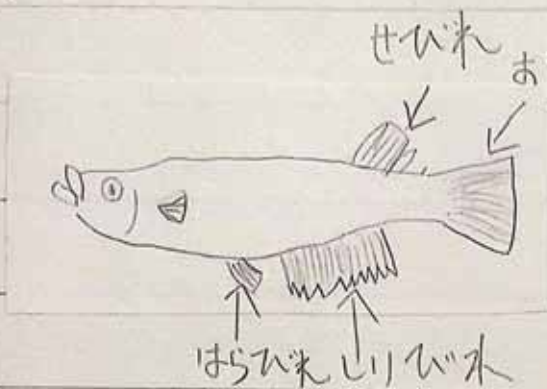 せびれ
お
はらびれ しりびれ